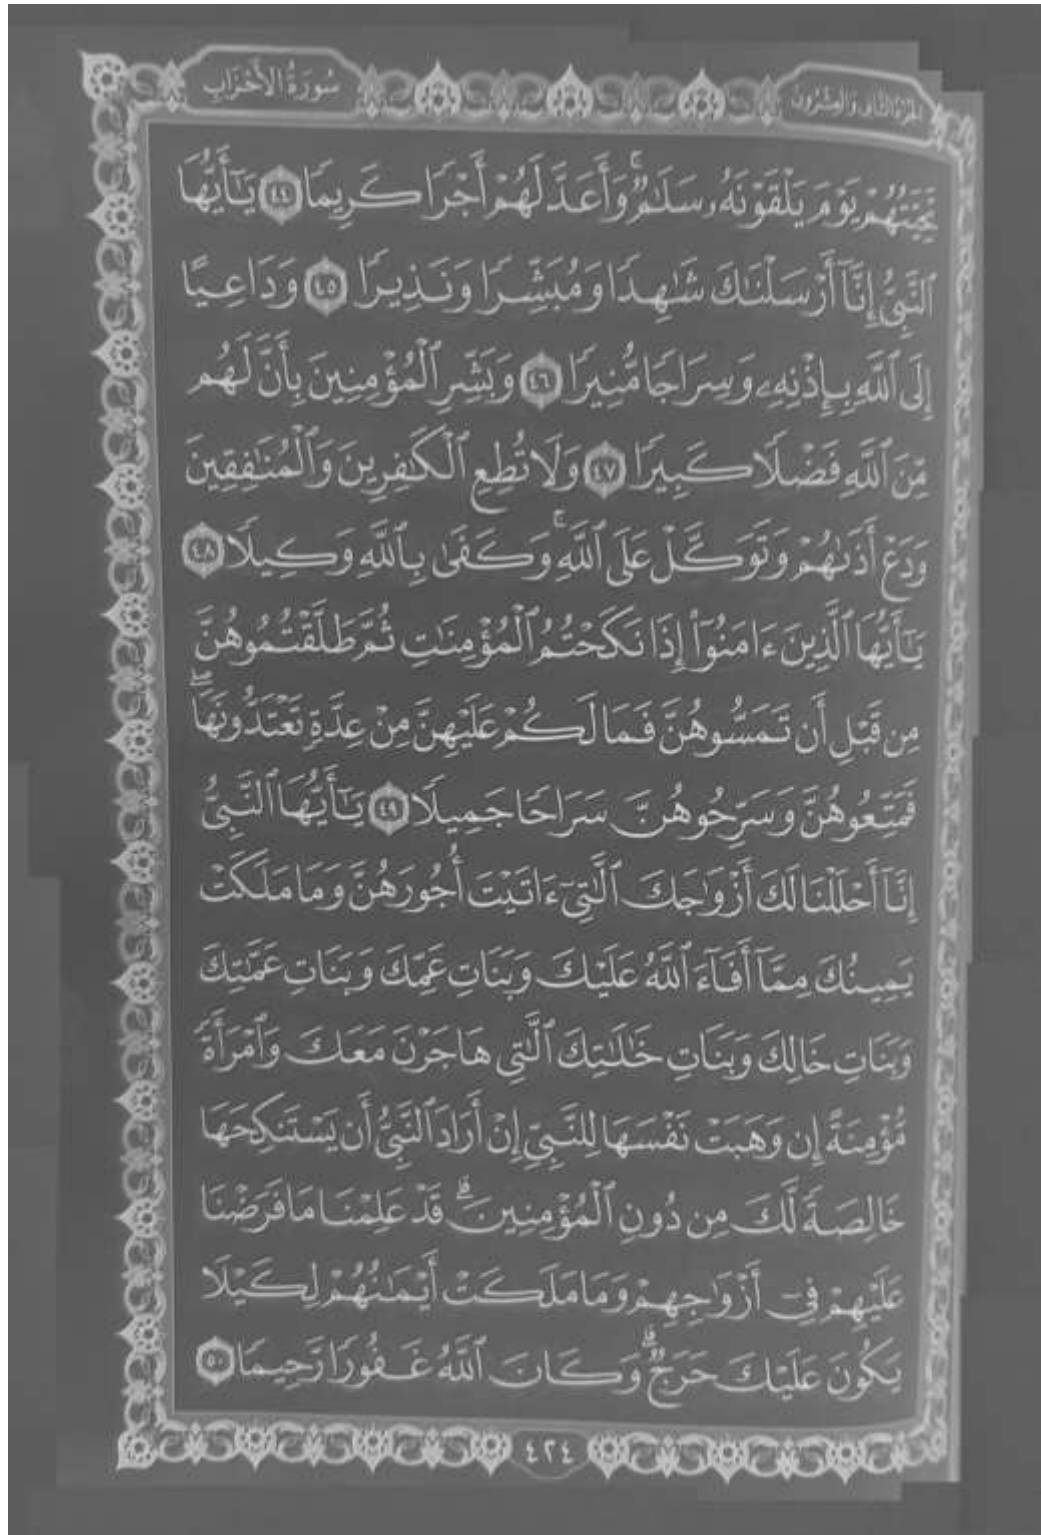 الجزء الثاني والعشرون
سُورَةُ الأَحْزَابِ
تَحِيَّتُهُمْ يَوْمَ يَلْقَوْنَهُۥ سَلَٰمٌۚ وَأَعَدَّ لَهُمْ أَجْرًا كَرِيمًا ٤٤ يَٰٓأَيُّهَا
ٱلنَّبِيُّ إِنَّآ أَرْسَلْنَٰكَ شَٰهِدًا وَمُبَشِّرًا وَنَذِيرًا ٤٥ وَدَاعِيًا
إِلَى ٱللَّهِ بِإِذْنِهِۦ وَسِرَاجًا مُّنِيرًا ٤٦ وَبَشِّرِ ٱلْمُؤْمِنِينَ بِأَنَّ لَهُم
مِّنَ ٱللَّهِ فَضْلًا كَبِيرًا ٤٧ وَلَا تُطِعِ ٱلْكَٰفِرِينَ وَٱلْمُنَٰفِقِينَ
وَدَعْ أَذَىٰهُمْ وَتَوَكَّلْ عَلَى ٱللَّهِۚ وَكَفَىٰ بِٱللَّهِ وَكِيلًا ٤٨
يَٰٓأَيُّهَا ٱلَّذِينَ ءَامَنُوٓا۟ إِذَا نَكَحْتُمُ ٱلْمُؤْمِنَٰتِ ثُمَّ طَلَّقْتُمُوهُنَّ
مِن قَبْلِ أَن تَمَسُّوهُنَّ فَمَا لَكُمْ عَلَيْهِنَّ مِنْ عِدَّةٍ تَعْتَدُّونَهَاۖ
فَمَتِّعُوهُنَّ وَسَرِّحُوهُنَّ سَرَاحًا جَمِيلًا ٤٩ يَٰٓأَيُّهَا ٱلنَّبِيُّ
إِنَّآ أَحْلَلْنَا لَكَ أَزْوَٰجَكَ ٱلَّٰتِيٓ ءَاتَيْتَ أُجُورَهُنَّ وَمَا مَلَكَتْ
يَمِينُكَ مِمَّآ أَفَآءَ ٱللَّهُ عَلَيْكَ وَبَنَاتِ عَمِّكَ وَبَنَاتِ عَمَّٰتِكَ
وَبَنَاتِ خَالِكَ وَبَنَاتِ خَٰلَٰتِكَ ٱلَّٰتِي هَاجَرْنَ مَعَكَ وَٱمْرَأَةً
مُّؤْمِنَةً إِن وَهَبَتْ نَفْسَهَا لِلنَّبِيِّ إِنْ أَرَادَ ٱلنَّبِيُّ أَن يَسْتَنكِحَهَا
خَالِصَةً لَّكَ مِن دُونِ ٱلْمُؤْمِنِينَۗ قَدْ عَلِمْنَا مَا فَرَضْنَا
عَلَيْهِمْ فِيٓ أَزْوَٰجِهِمْ وَمَا مَلَكَتْ أَيْمَٰنُهُمْ لِكَيْلَا
يَكُونَ عَلَيْكَ حَرَجٌۗ وَكَانَ ٱللَّهُ غَفُورًا رَّحِيمًا ٥٠
٤٢٤